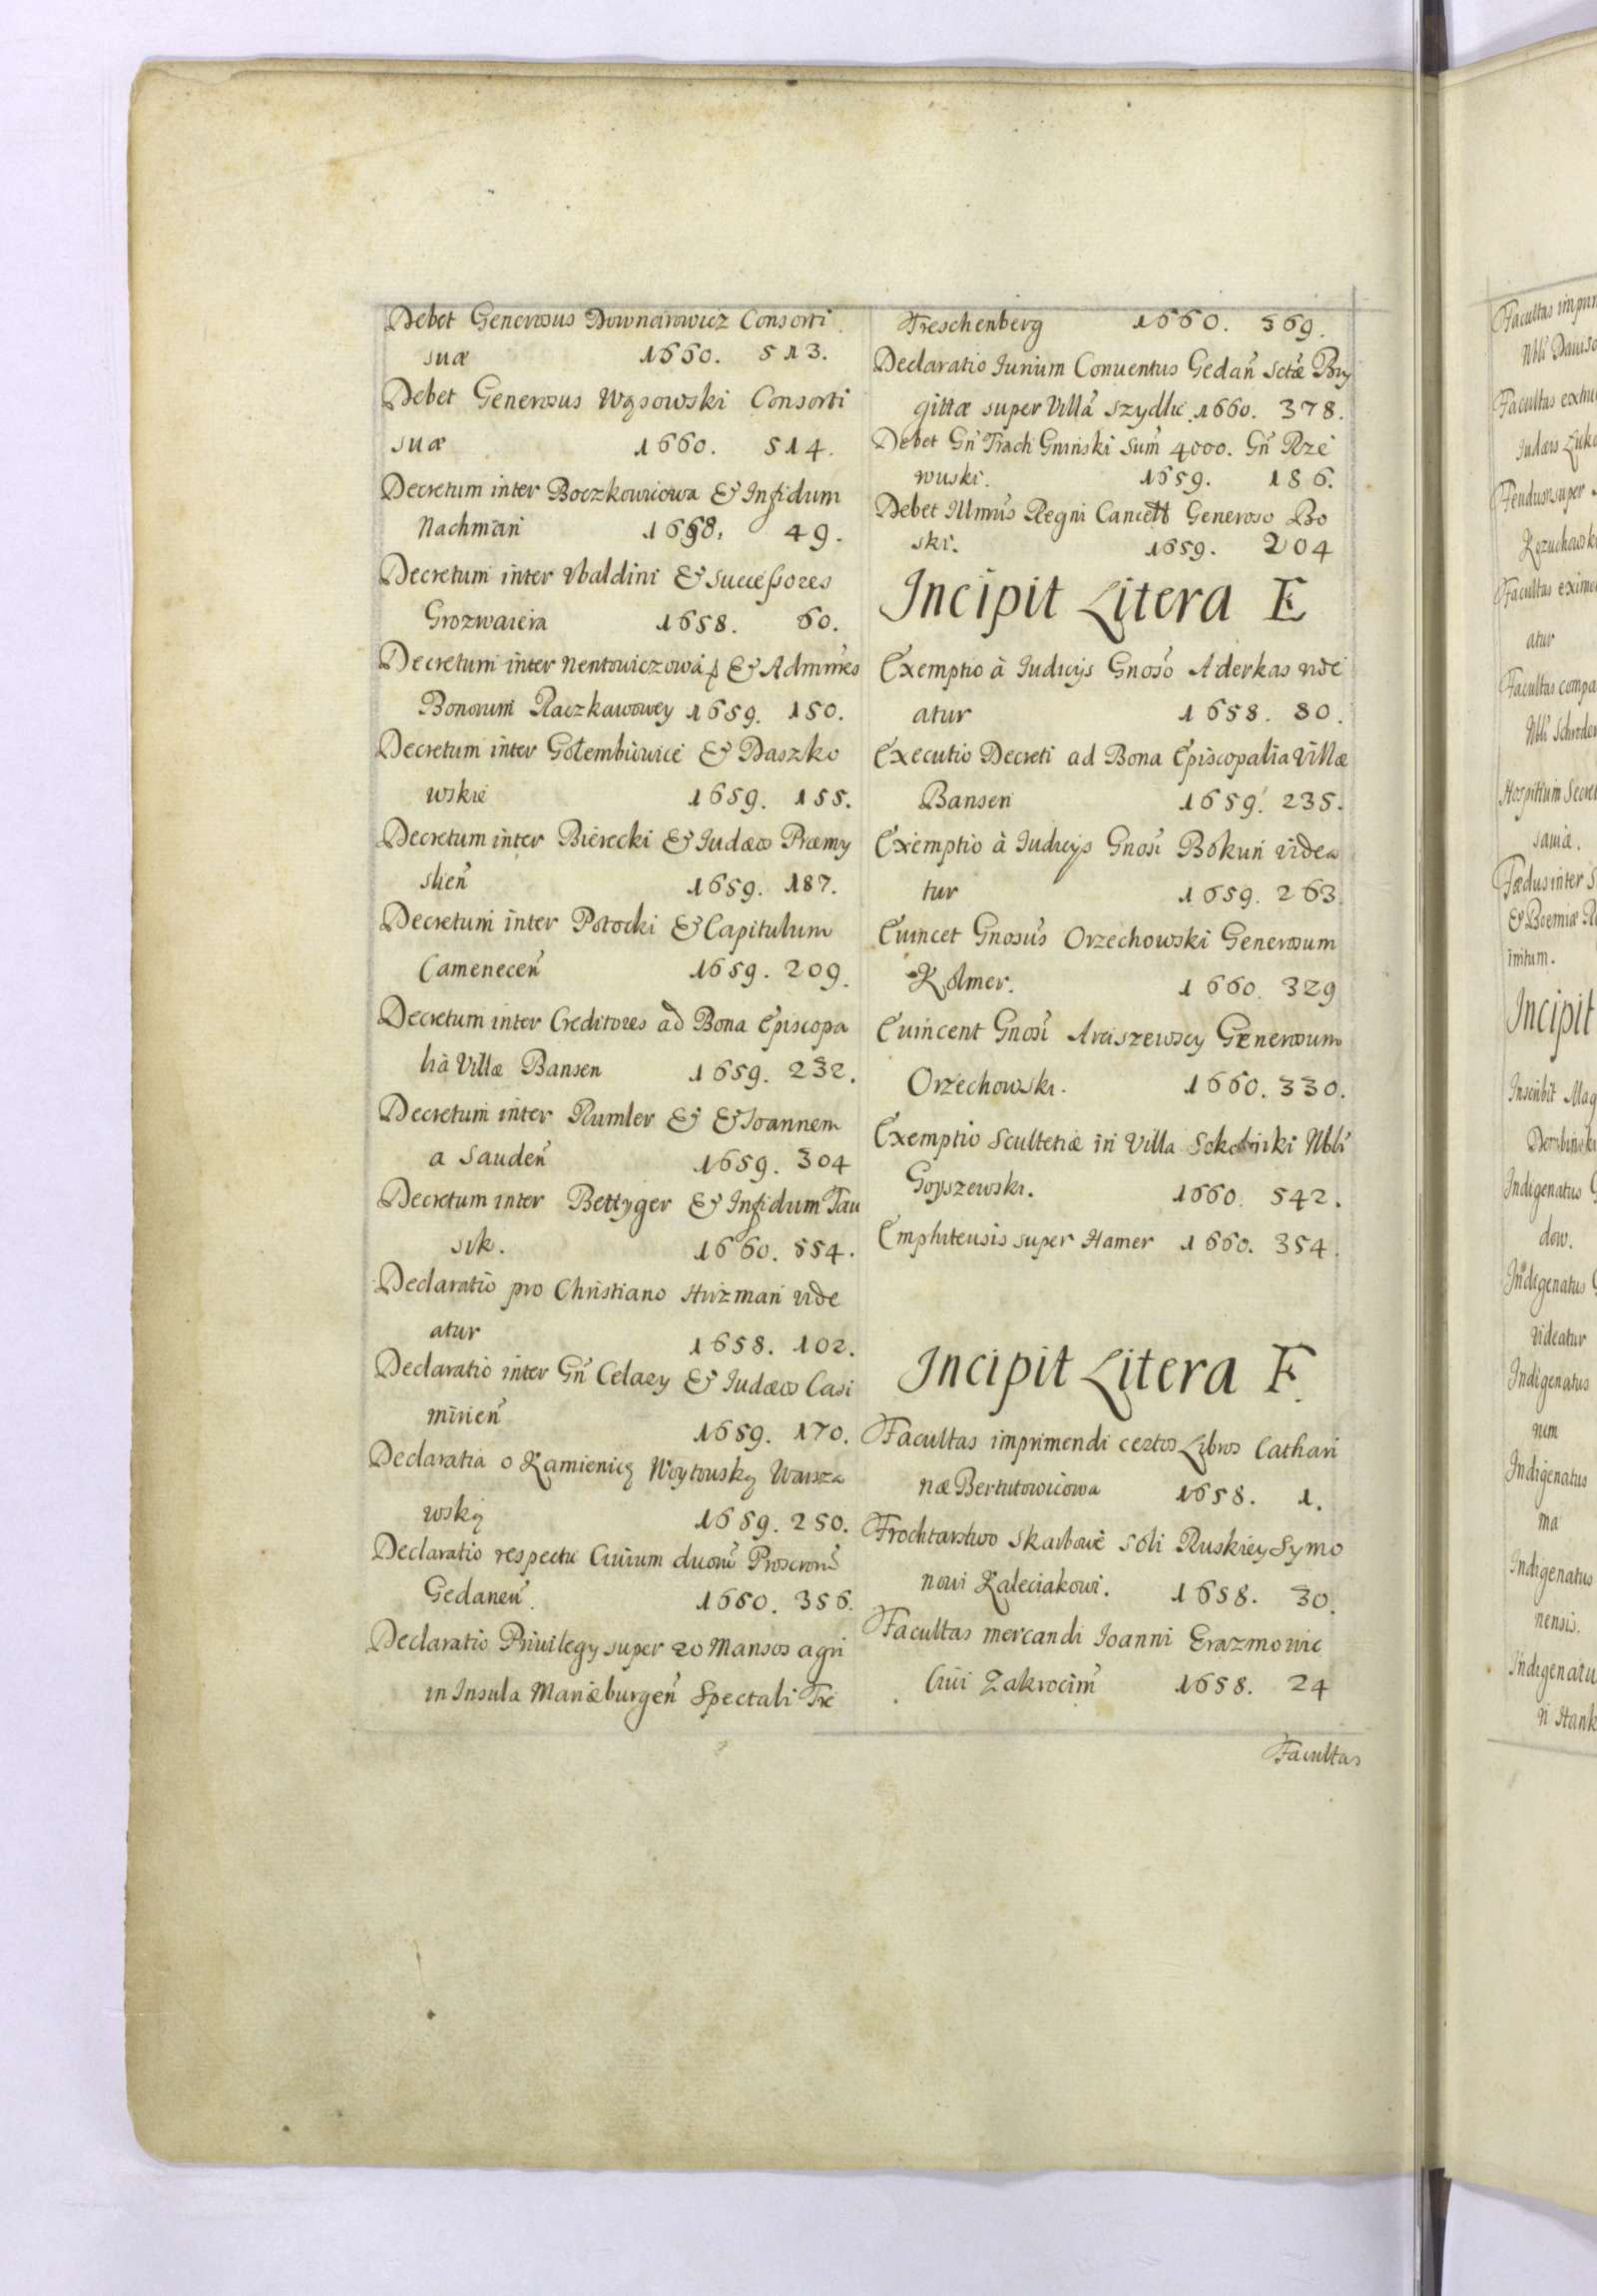 Debet Generosus Downarowicz Consorti
suæ 1660. 513.
Debet Generosus Wąsowski Consorti
suæ 1660. 514.
Decretum inter Boczkowicowa & Infidum
Nachman 1658. 49.
Decretum inter Vbaldini & Successores
Grozwaiera 1658. 60.
Decretum inter Nentowiczowa & Admin̄es
Bonorum Raczkawowey 1659. 150.
Decretum inter Gołembiowice & Daszko
wskie 1659. 155.
Decretum inter Bierecki & Iudæos Præmy
slień 1659. 187.
Decretum inter Potocki & Capitulum
Cameneceń 1659. 209.
Decretum inter Creditores ad Bona Episcopa
lia Villæ Bansen 1659. 232.
Decretum inter Rumler & & Ioannem
a Saudeń 1659. 304
Decretum inter Bettyger & Infidum Tau
sik. 1660. 554.
Declaratio pro Christiano Hirzman vide
atur 1658. 102.
Declaratio inter Gn̄ Celary & Iudæos Casi
mirień 1659. 170.
Declaratia o Kamienicę Woytowską Warsza
wską 1659. 250.
Declaratio respectu Ciuium duor̄ Proscror̄
Gedaneń. 1660. 356.
Declaratio Priuilegy super 20 Mansos agri
in Insula Mariæburgeń Spectali Tre
Treschenberg 1660. 369.
Declaratio Iurium Conuentus Gedań Sctæ Bry
gittæ super Villā Szydlic 1660. 378.
Debet Gń Trach Gninski Sum̄ 4000. Gń Rze
wuski. 1659. 186.
Debet Illmūs Regni Cancell Generoso Bo
ski. 1659. 204
Incipit Litera E
Exemptio à Iudicÿs Gnoso Aderkas vide
atur 1658. 80.
Executio Decreti ad Bona Episcopalia Villæ
Bansen 1659. 235.
Exemptio à Iudicÿs Gnosi Bokuń videa
tur 1659. 263
Euincet Gnosus Orzechowski Generosum
Kolmer. 1660. 329
Euincent Gnosi Arciszewscy Generosum
Orzechowski. 1660. 330.
Exemptio Scultetiæ in Villa Sokolniki Nbli
Goyszewski. 1660. 542.
Emphiteusis super Hamer 1660. 354.
Incipit Litera F.
Facultas imprimendi certos Libros Cathari
næ Bertutowicowa 1658. 1.
Frochtarstwo Skarbowe Soli Ruskiey Symo
nowi Kaleciakowi. 1658. 30.
Facultas mercandi Ioanni Erazmowic
Ciui Zakrocim̄ 1658. 24
Facultas
Facultas
Nbli
Facultas
Iudæis
Feudum super
Facultas
atur
Facultas
Nbli
Hospitium
Fœdus inter
& Boemiæ
initum.
Incipit
Inscribit Mag
Indigenatus
dow.
Indigenatus
Videatur
Indigenatus
num
Indigenatus
ma
Indigenatus
nensis.
Indigenatu